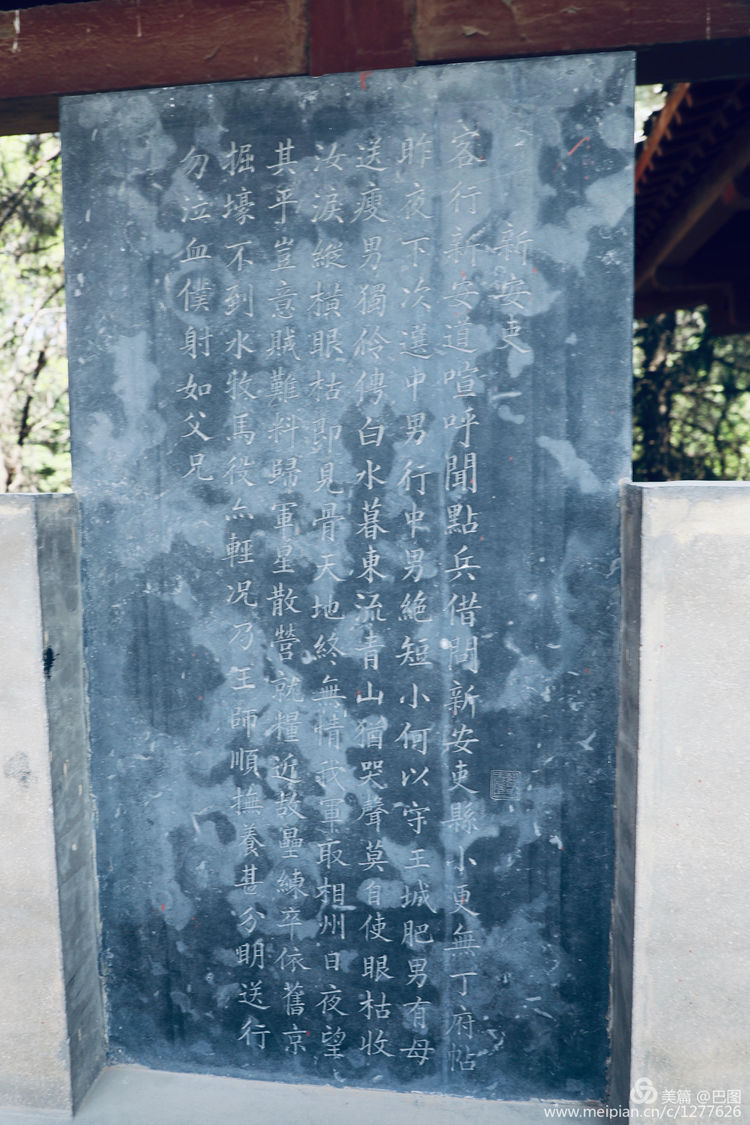 新安吏
客行新安道喧呼聞點兵借問新安吏縣小更無丁府帖
昨夜下次選中男行中男絕短小何以守王城肥男有母
送瘦男獨伶俜白水暮東流青山猶哭聲莫自使眼枯收
汝淚縱橫眼枯即見骨天地終無情我軍取相州日夜望
其平豈意賊難料歸軍星散營就糧近故壘練卒依舊京
掘壕不到水牧馬役亦輕況乃王師順撫養甚分明送行
勿泣血僕射如父兄
美篇 @巴图
www.meipian.cn/c/1277626